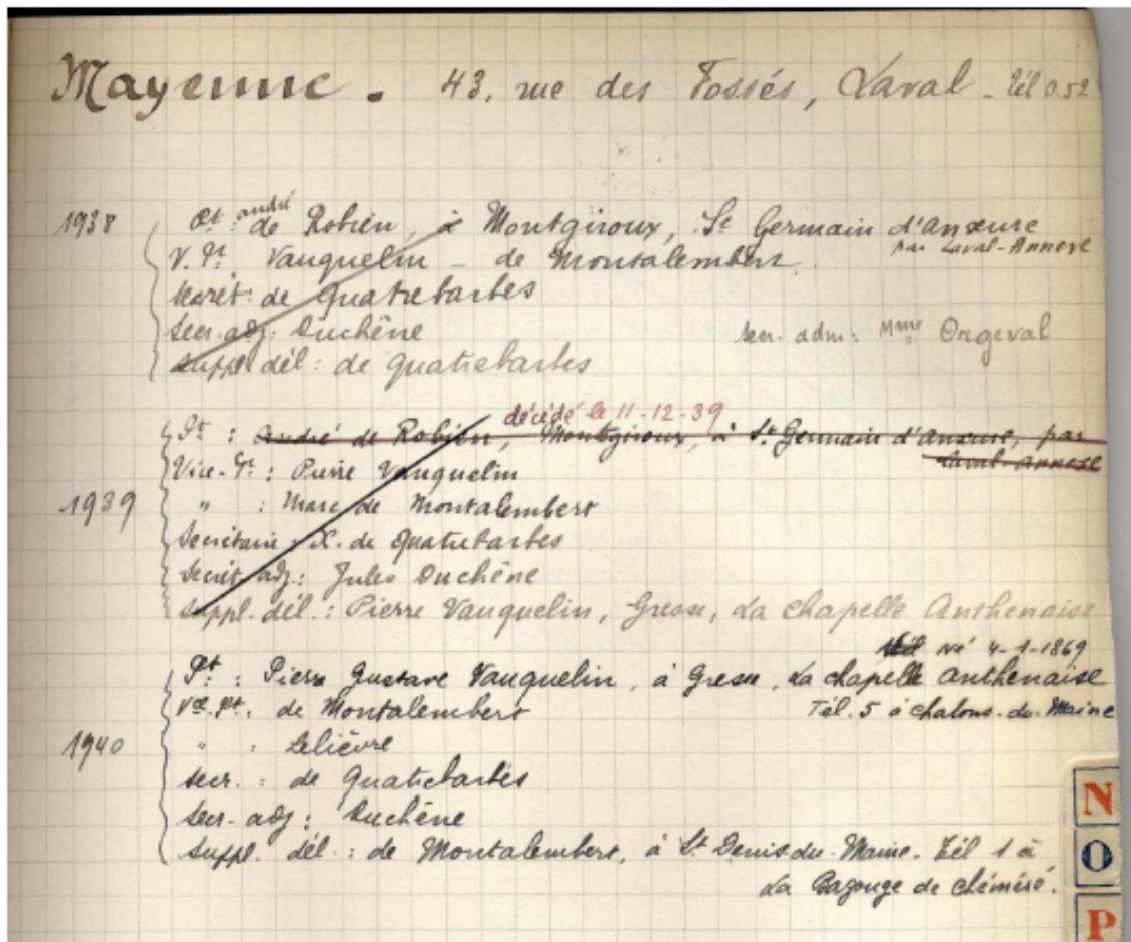 Mayenne. 43, rue des Fossés, Laval - Tél 0.52
1938
Pt : andré de Robien, à Montgiroux, St Germain d'Anxure
par Laval-Annexe
V. Pt. Vauquelin - de Montalembert
Secrét : de Quatrebarbes
Secr. adj : Duchêne
secr. adm : Mme Orgeval
Suppl dél : de Quatrebarbes
décédé le 11-12-39
Pt : André de Robien, Montgiroux, à St Germain d'Anxure, par
Laval-Annexe
Vice-Pt : Pierre Vauquelin
1939
" : Marc de Montalembert
Secrétaire : X. de Quatrebarbes
Secrét. adj : Jules Duchêne
Suppl. dél. : Pierre Vauquelin, Gresse, La Chapelle Anthenaise
né 4-1-1869
Pt : Pierre Gustave Vauquelin, à Gresse, La Chapelle Anthenaise
Vce. Pt. : de Montalembert
Tél. 5 à Chalons-du-Maine
1940
" : Lelièvre
Secr. : de Quatrebarbes
Secr. adj : Duchêne
Suppl. dél. : de Montalembert, à St Denis-du-Maine. Tél 1 à
La Bazouge de Chémeré.
N
O
P